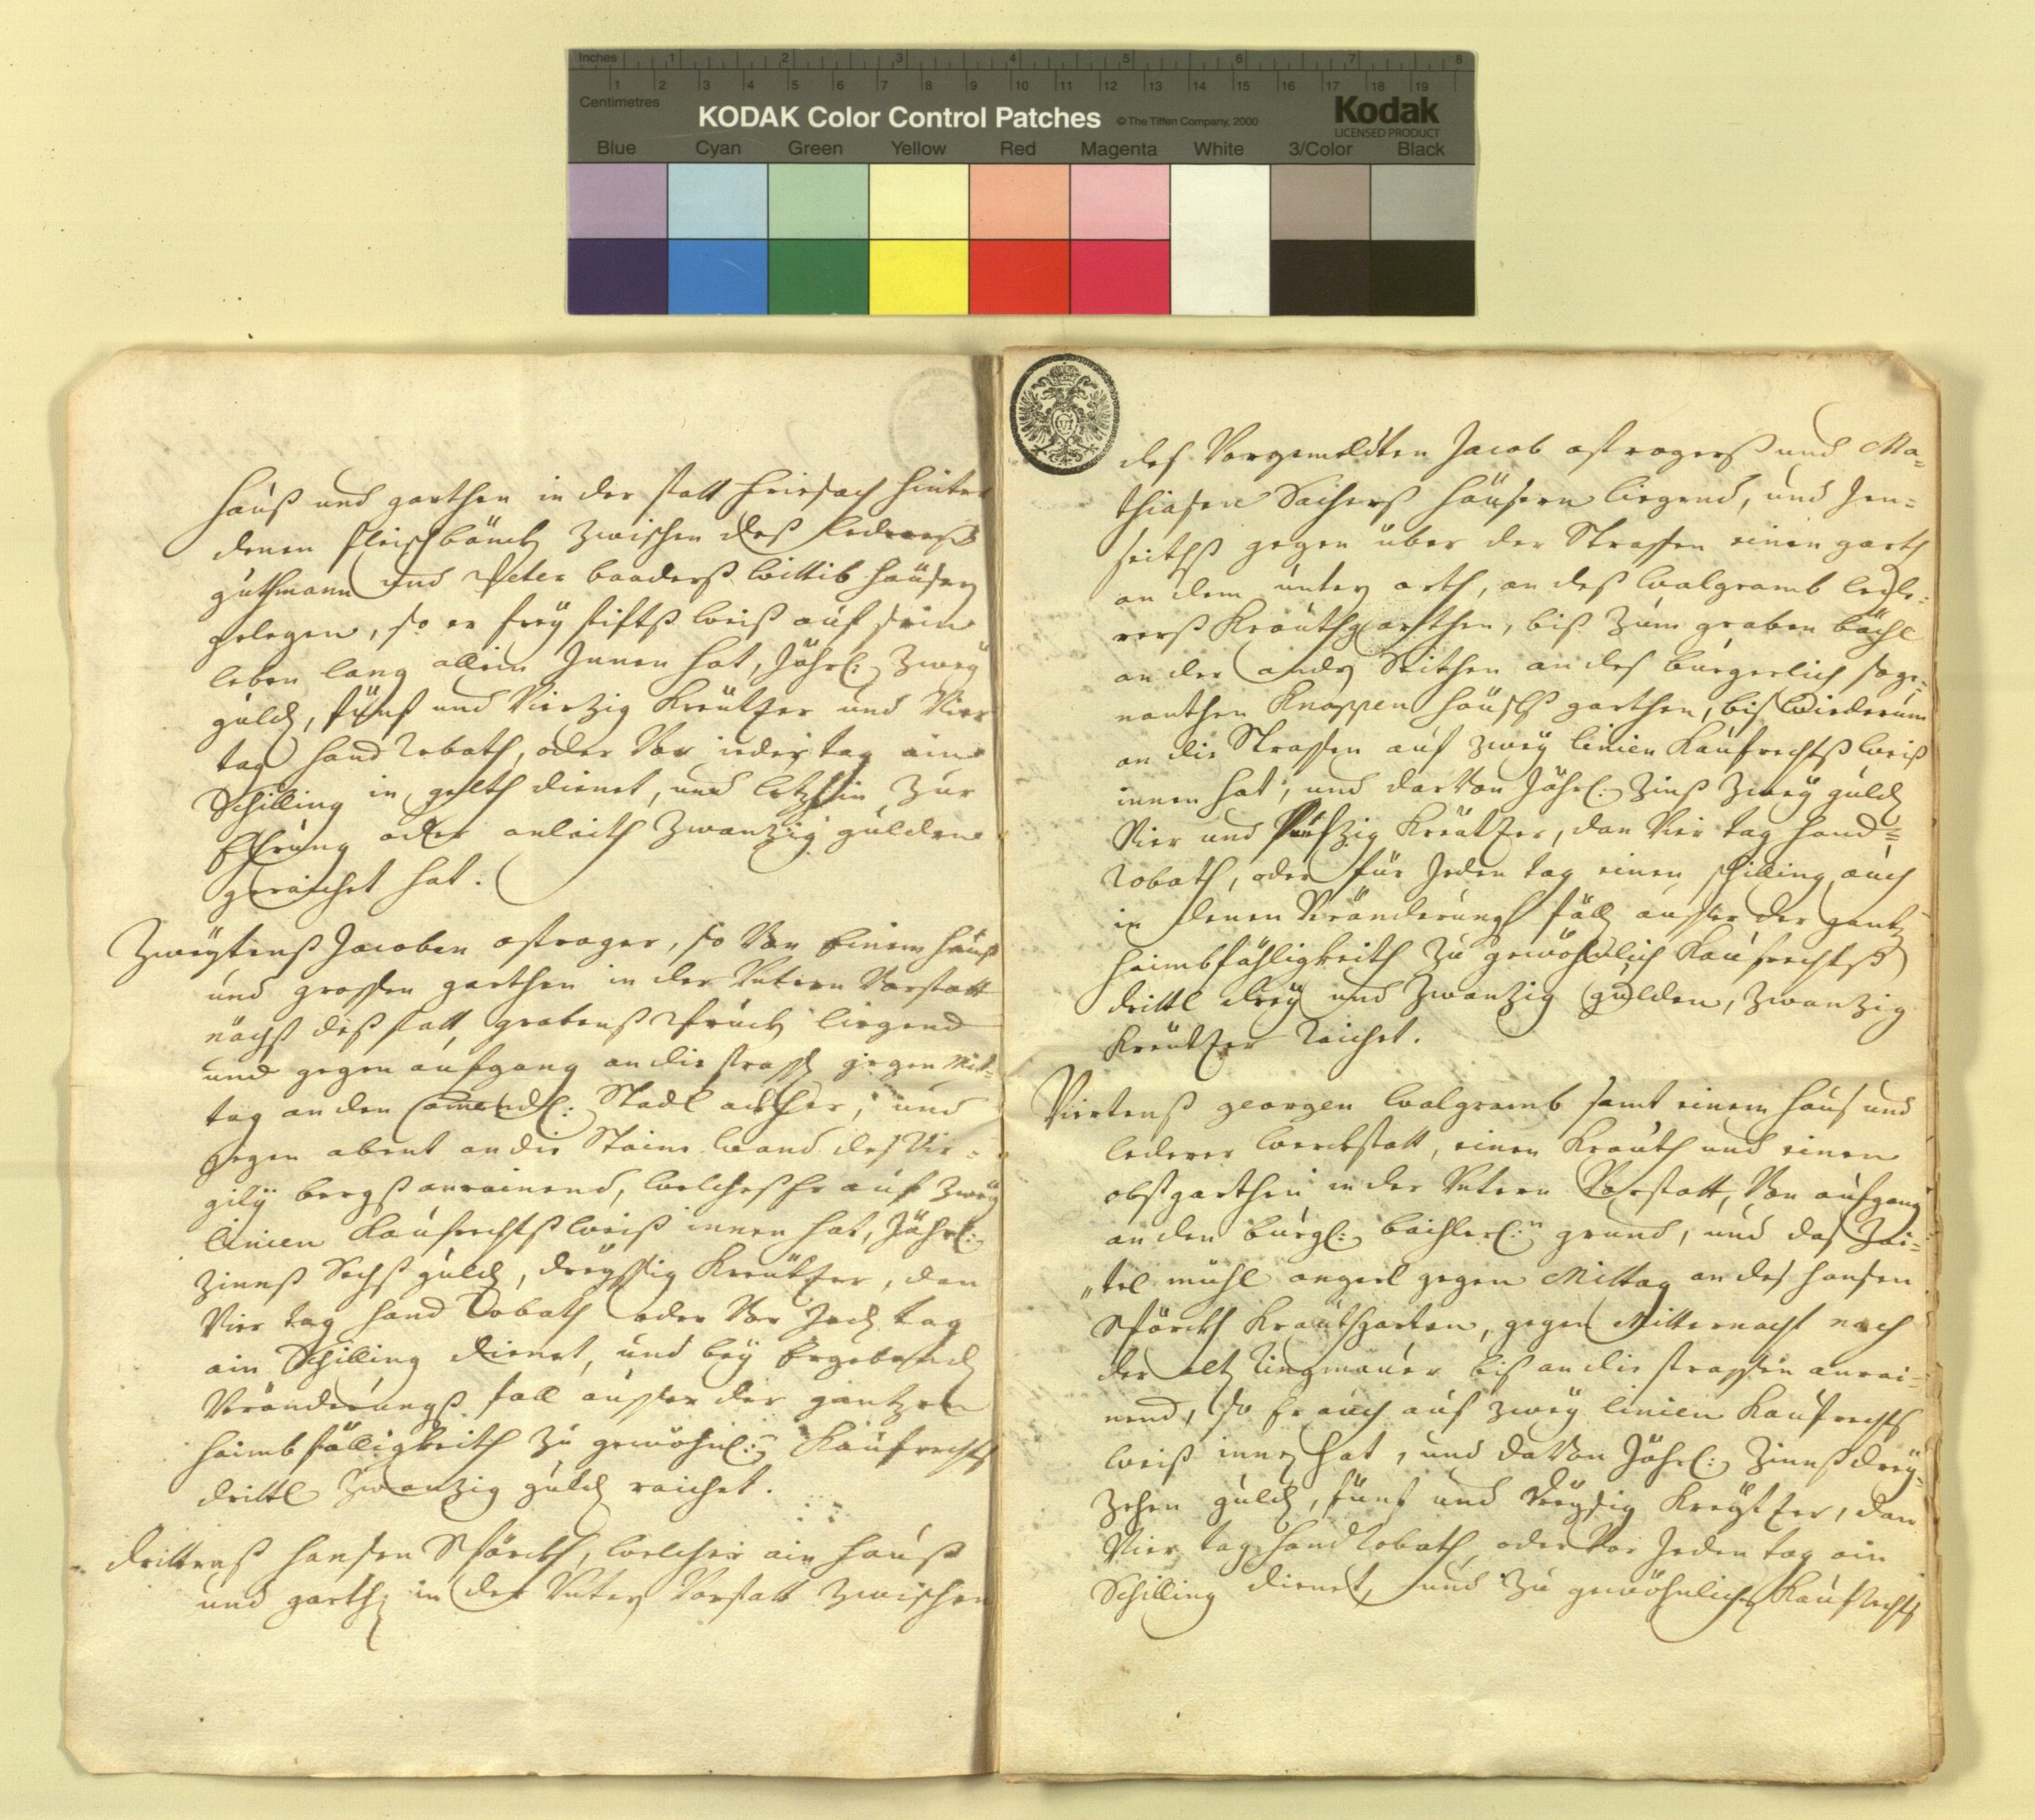 Inches 1 2 3 4 5 6 7 8
1 2 3 4 5 6 7 8 9 10 11 12 13 14 15 16 17 18 19
Centimetres
KODAK Color Control Patches © The Tiffen Company, 2000 Kodak
LICENSED PRODUCT
Blue Cyan Green Yellow Red Magenta White 3/Color Black
hauß und garthen in der statt Friesach hinter
denen fleischbänckh zwischen deß Lederers
guthmann und Peter baaderß wittib häuser
gelegen, so er frey stiftß weiß auf sein
leben lang allein Innen hat, Jährl: zwey
guld, fünf und Vierzig Kreützer und Vier
tag hand robath, oder Vor ieder tag ain
Schilling in gelth dienet, und letzhin zur
Ehrung oder anlaith zwanzig gulden
geraichet hat.
Zweytenß Jacoben astrager, so Von Einem hauß
und grossen garthen in der Untern Vorstatt
nächst deß statt grabenß Pruckh liegend
und gegen aufgang an die strass gegen Mit=
tag an den Comendl: Stadl ackher, und
gegen abent an die Stain wand des Vir=
gily bergß anrainend, welches Er auf zwey
linien Kaufrechtß weiß innen hat, Jährl:
zinnß Sechß guld, dreyssig Kreützer, dan
Vier tag hand Robath oder Vor Jed tag
ain Schilling dienet, und bey Ergebend
Veränderungß fall ausser der gantzen
haimbfälligkeith zu gewöhnl: Kaufrechts
drittl zwanzig guld raichet.
Drittenß hansen Störckh, welcher ain hauß
und garth in der Unter Vorstatt zwischen
VI
des Vorgemeldten Jacob astragerß und Ma=
thiasen Sacherß häusern liegend, und Jen=
seithß gegen über der Strassen einen garth
an dem untern orth, an deß walgramb lede=
rerß Krauthgarthen, biß zum graben bächl
an der andn Seithen an des burgerlich soge=
nanthen Knappen häuslß garthen, bis wiederum
an die Strassen auf zwey linien Kaufrechtß weiß
innen hat, und darVon Jährl: zinß zwey guld
Vier und Kreützer, dan Vier tag hand=
robath, oder für Jeden tag einen schilling, auch
in denen Veränderungs fäll ausser der gantz
haimbfähligkeith zu gewöhnlich Kaufrechtß
drittl drey und zwanzig gulden, zwanzig
Kreützer raichet.
Viertenß georgen walgramb samt einem hauß und
lederer werckstatt, einen Krauth und einen
obstgarthen in der Untern Vorstatt, Von aufgang
an den burgl: grund, und das
mühl angerl gegen Mittag an des hansen
Störckh Krauthgarten, gegen Mitternacht nach
der alt Ringmauer bis an die strassen anrai=
nend, so Er auch auf zwey linien Kaufrechts
weiß innen hat, und daVon Jährl: zinnß drey=
zehen guld, fünf und dreyssig Kreützer, dan
Vier tag hand Robath, oder Vor Jeden tag ain
Schilling dienet, und zu gewöhnlichen Kaufrechts